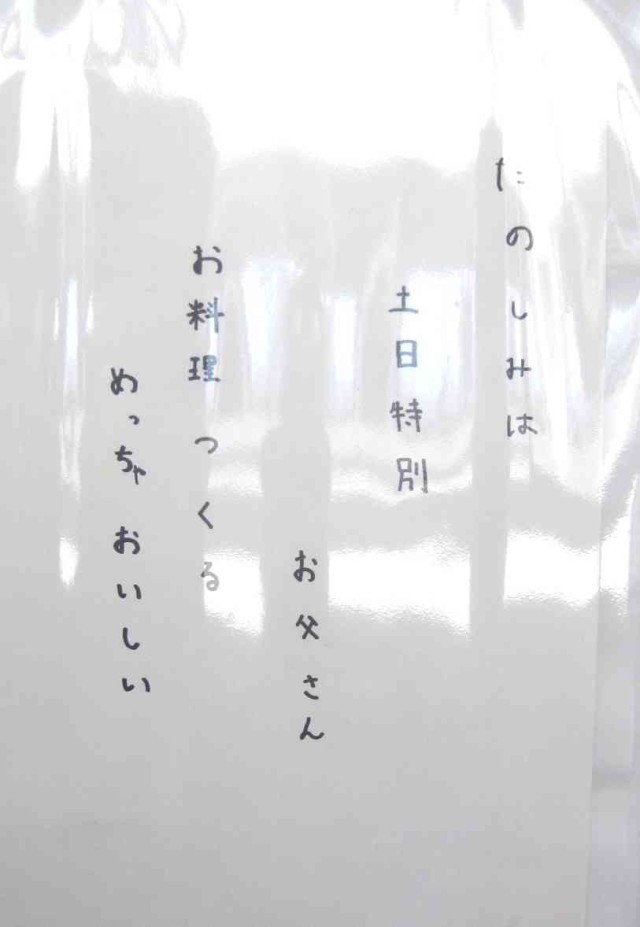 たのしみは
土日特別
お父さん
お料理つくる
めっちゃおいしい